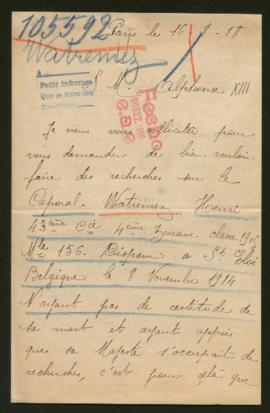 105592
Paris le 16 - 8 - 18
Watremez
S. M. Alphonse XIII
Je viens vous solliciter pour
vous demander de bien vouloir
faire des recherches sur le
Caporal. Watremez Henri
43ème Cie 4ème Zouave. classe
Mle 156. Disparu a St Eloi
Belgique le 8 Novembre 1914
N'ayant pas de certitude de
sa mort et ayant appris
que sa Majesté s'occupait de
recherches, c'est pour cela que